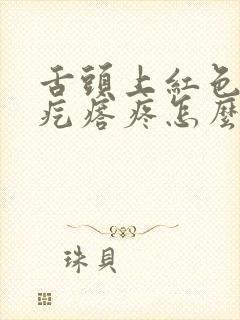 舌頭上紅色
疙瘩疼怎麼
珠貝